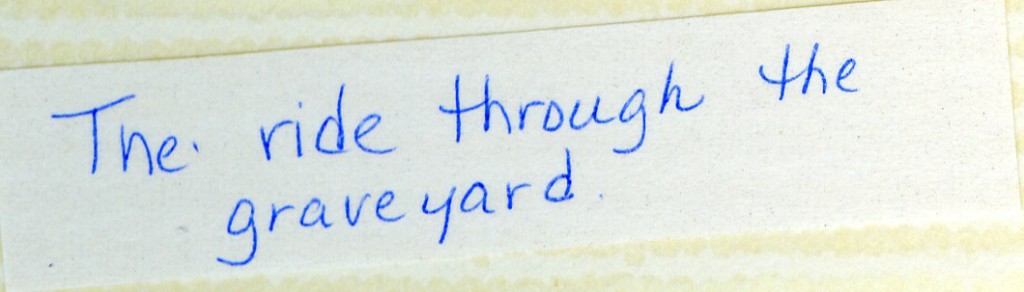 The. ride through the
graveyard.